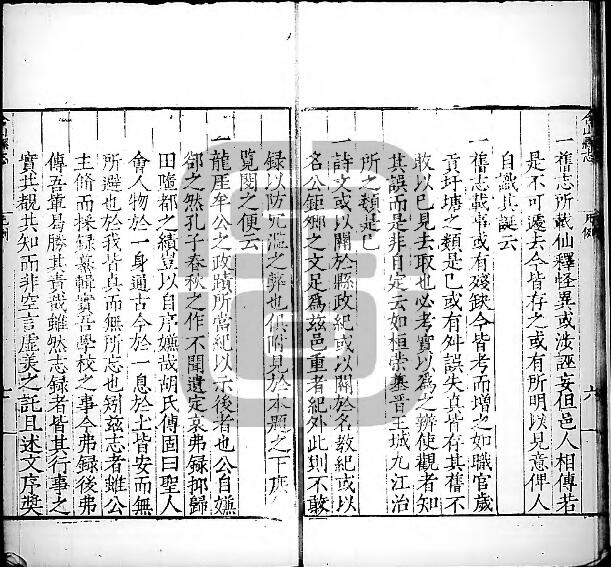 一舊志所載仙釋怪異或涉誣妄但邑人相傳若
是不可遽去今皆存之或有所明以見意俾人
自識其誕云
一舊志載事或有殘缺今皆考而增之如職官歲
貢圩塘之類是已或有舛誤失真皆存其舊不
敢以已見去取也必考實以為之辨使觀者知
其誤而是非自定云如桓榮墓晋王城九江治
所之類是已
一詩文或以關於縣政紀或以關於名教紀或以
名公鉅鄉之文足為兹邑重者紀外此則不敢
錄以防冗濫之弊也俱附見於本題之下庶
覧閱之便云
一龍厓牟公之政蹟所當紀以示後者也公自嫌
郤之然孔子春秋之作不聞遺定哀弗録郤歸
田隳都之績豈以自序嫌哉胡氏傳固曰聖人
會人物於一身通古今於一息於土皆安而無
所避也於我皆真而無所忘也矧兹志者雖公
主脩而採録纂輯實吾學校之事今弗録後弗
傳吾軰曷勝其責哉雖然志録者皆其行事之
實共覩共知而非空言虚美之託且述文序奬
志
序例
六
七